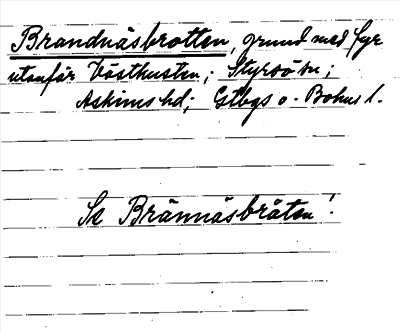 Brandnäsbrotten, grund med fyr
utanför Västkusten; Styrsö sn;
Askims hd; Gtbgs o. Bohus l.
Se Brännäsbråten!